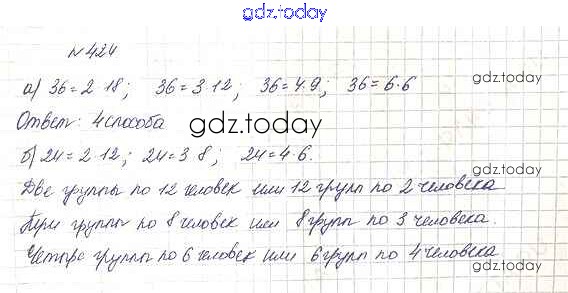 gdz.today
№ 424
а) 36=2·18; 36=3·12; 36=4·9; 36=6·6
gdz.today
Ответ: 4 способа
gdz.today
б) 24=2·12; 24=3·8; 24=4·6.
Две группы по 12 человек или 12 групп по 2 человека
gdz.today
Три группы по 8 человек или 8 групп по 3 человека.
Четыре группы по 6 человек или 6 групп по 4 человека
gdz.today